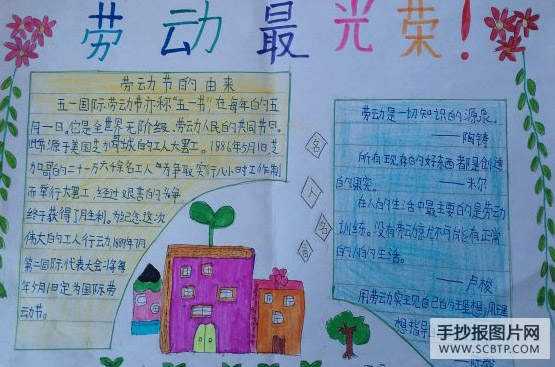 劳动最光荣！
劳动节的由来
五一国际劳动节亦称"五一节"，在每年的五
月一日。它是全世界无阶级、劳动人民的共同节日。
此源于美国芝加哥城的工人大罢工。1886年5月1日芝
加哥的二十一万六千余名工人为争取实行八小时工作制
而举行大罢工，经过艰苦的
终于获得了胜利。为纪念这次
伟大的工人行动，1889年7月
第二国际代表大会将每
年5月1日定为国际劳
动节。
名
人
名
言
劳动是一切知识的源泉。
——陶铸
所有现存的好东西都是创造
的果实。
——米尔
在人的生活中最主要的是劳动
训练。没有劳动就不可能有正常
的人的生活。
——卢梭
用劳动实现自己的理想，用理
想指导
手抄报图片网
WWW.SCBTP.COM